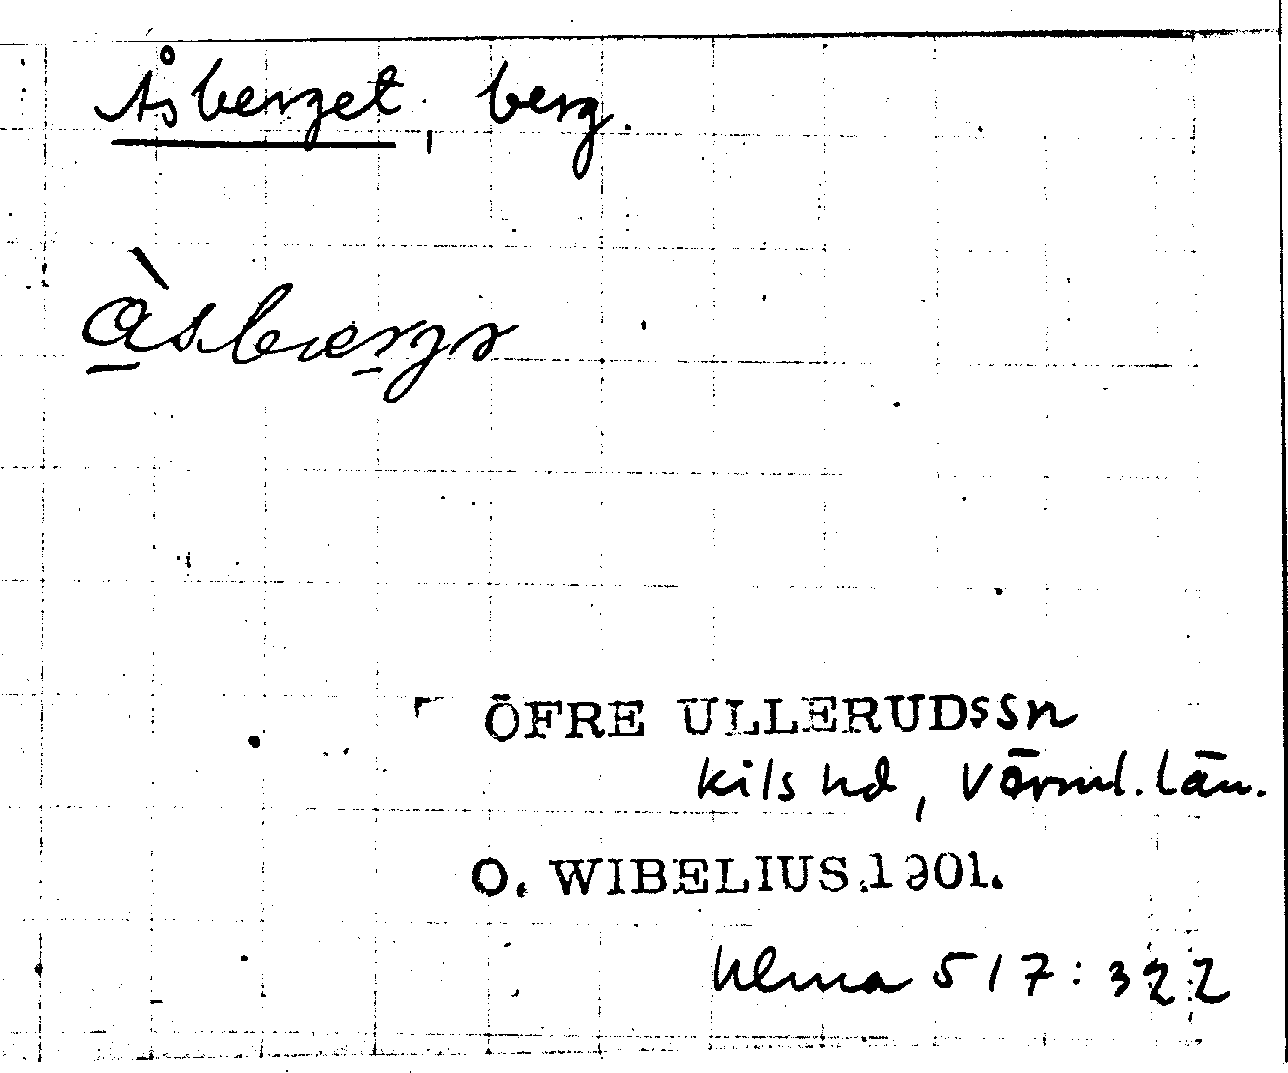 Åsberget, berg.
åsbærgr
ÖFRE ULLERUDSSn
Kils hd, Värml. län.
O. WIBELIUS.1901.
Ulma 517:322